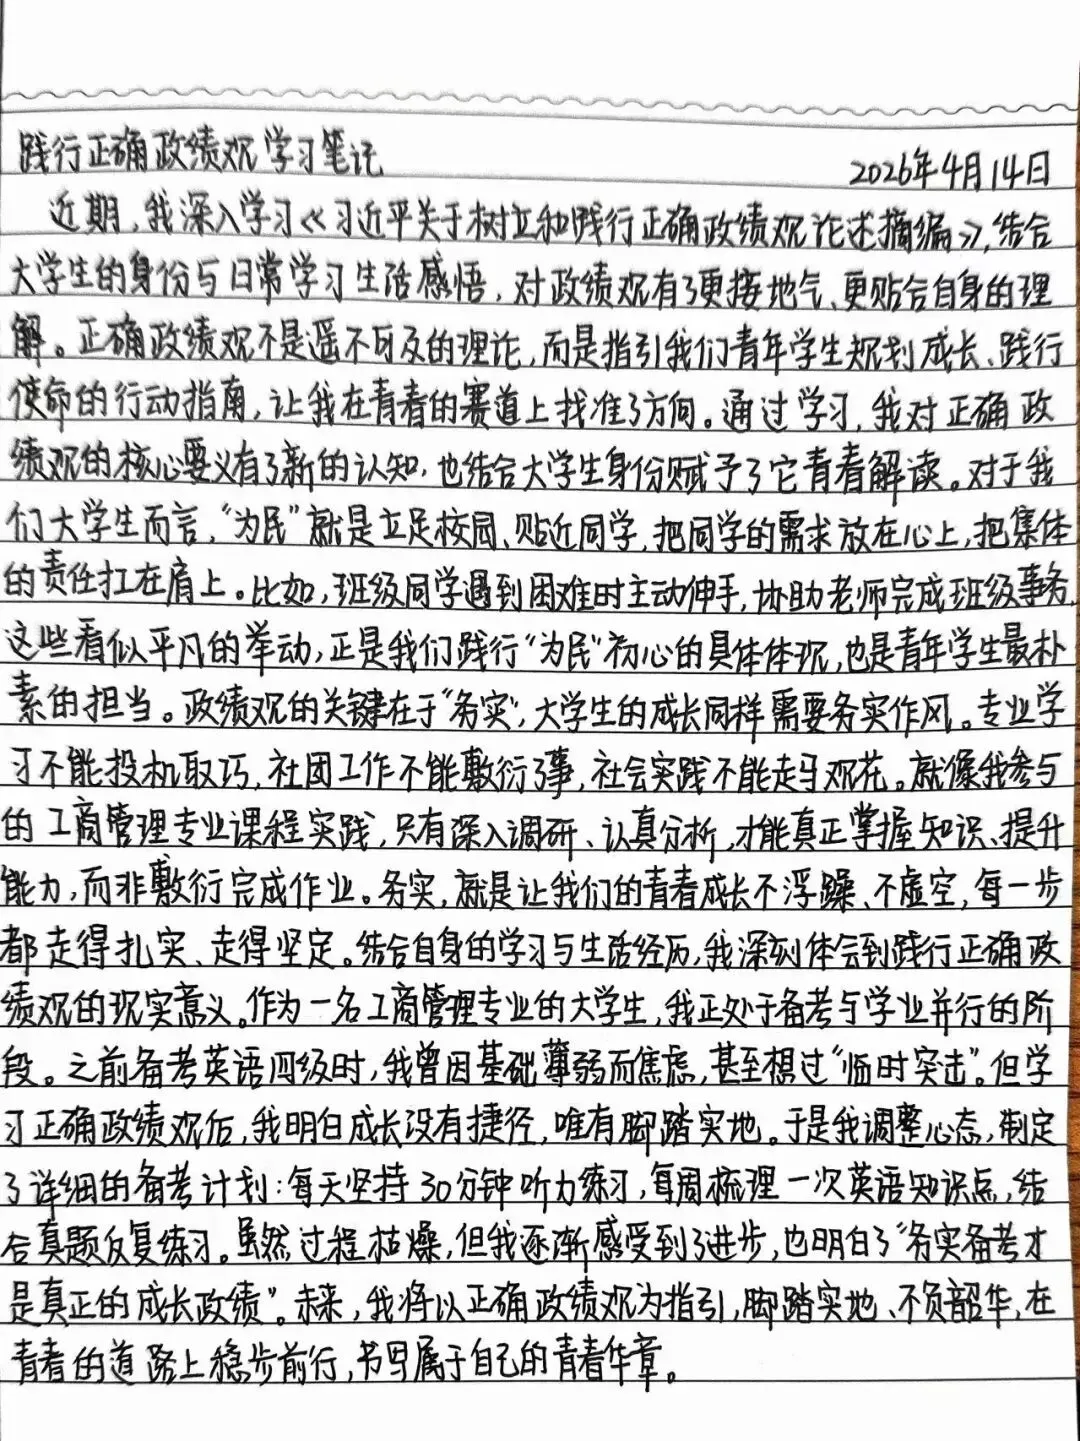 践行正确政绩观学习笔记
2026年4月14日
近期，我深入学习《习近平关于树立和践行正确政绩观论述摘编》，结合
大学生的身份与日常学习生活感悟，对政绩观有了更接地气、更贴合自身的理
解。正确政绩观不是遥不可及的理论，而是指引我们青年学生规划成长、践行
使命的行动指南，让我在青春的赛道上找准了方向。通过学习，我对正确政
绩观的核心要义有了新的认知，也结合大学生身份赋予了它青春解读。对于我
们大学生而言，“为民”就是立足校园、贴近同学，把同学的需求放在心上，把集体
的责任扛在肩上。比如，班级同学遇到困难时主动伸手，协助老师完成班级事务，
这些看似平凡的举动，正是我们践行“为民”初心的具体体现，也是青年学生最朴
素的担当。政绩观的关键在于“务实”，大学生的成长同样需要务实作风。专业学
习不能投机取巧，社团工作不能敷衍了事，社会实践不能走马观花。就像我参与
的工商管理专业课程实践，只有深入调研、认真分析，才能真正掌握知识、提升
能力，而非敷衍完成作业。务实，就是让我们的青春成长不浮躁、不虚空，每一步
都走得扎实、走得坚定。结合自身的学习与生活经历，我深刻体会到践行正确政
绩观的现实意义。作为一名工商管理专业的大学生，我正处于备考与学业并行的阶
段。之前备考英语四级时，我曾因基础薄弱而焦虑，甚至想过“临时突击”。但学
习正确政绩观后，我明白成长没有捷径，唯有脚踏实地。于是我调整心态，制定
了详细的备考计划：每天坚持30分钟听力练习，每周梳理一次英语知识点，结
合真题反复练习。虽然过程枯燥，但我逐渐感受到了进步，也明白了“务实备考才
是真正的成长政绩”。未来，我将以正确政绩观为指引，脚踏实地、不负韶华，在
青春的道路上稳步前行，书写属于自己的青春华章。